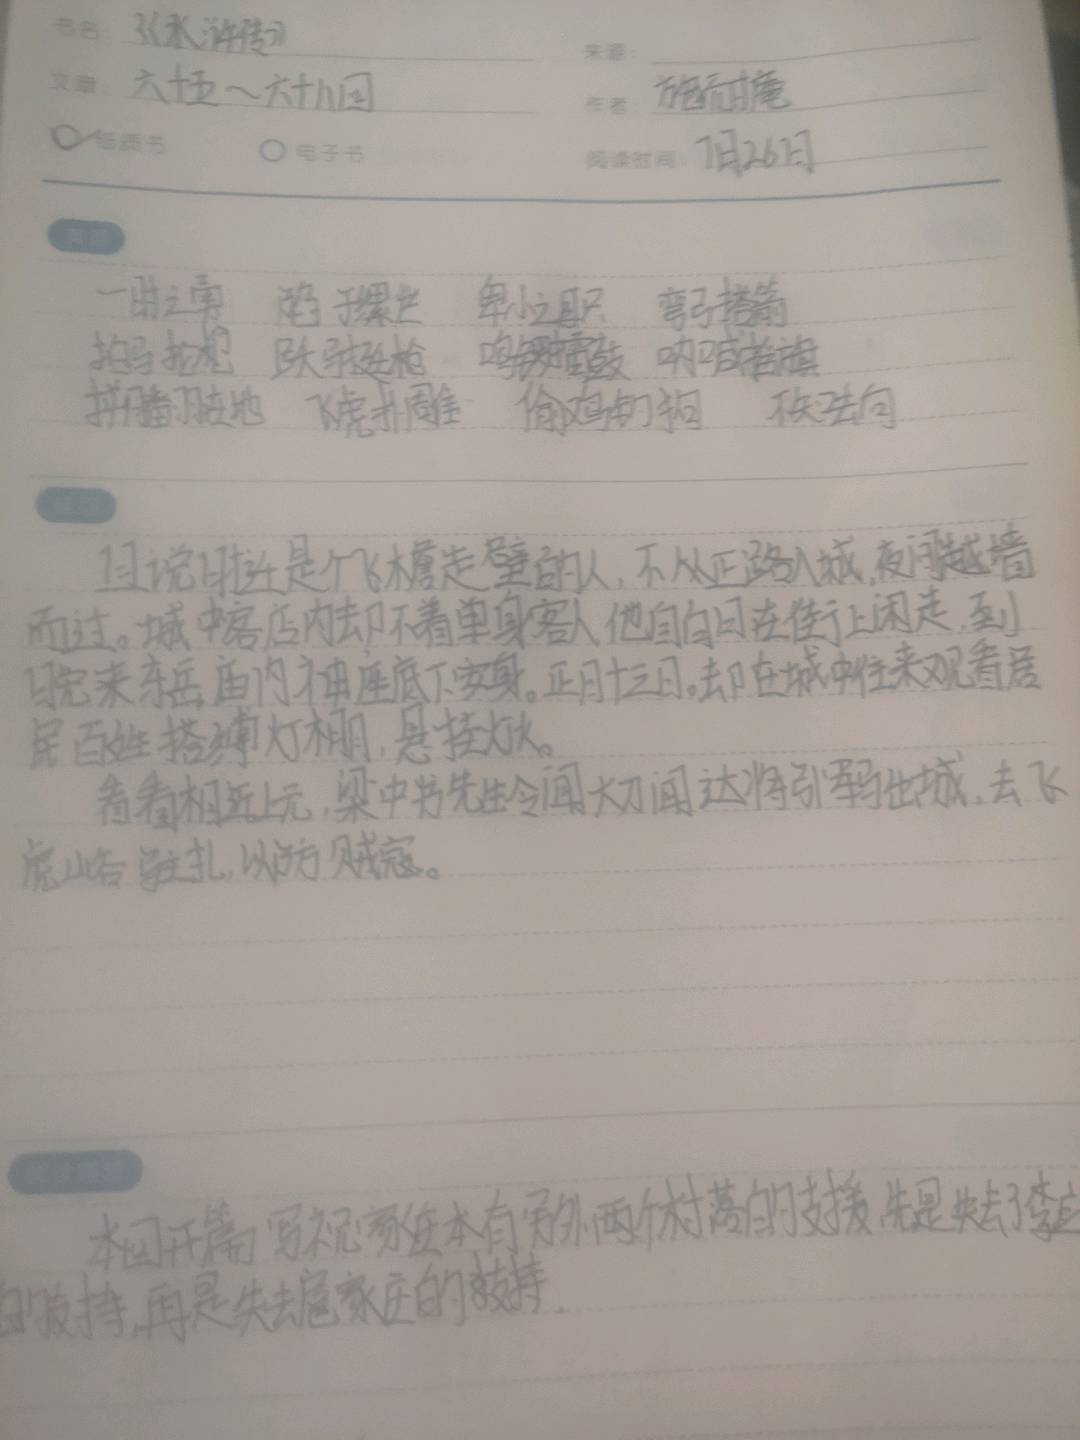 书名：《水浒传》
来源：
文章 六十五～六十八回
作者：施耐庵
纸质书 电子书 阅读时间：7月26日
一时之勇 陷于缧绁 卑小之职 弯弓搭箭
拍马拖枪 跃马挺枪 鸣锣擂鼓 呐喊摇旗
拼着 飞虎 偷鸡 狗
且说时迁是个飞檐走壁的人，不从正路入城，夜间越墙
而过。城中客店内却不着单身客人他自白日在街上闲走，到
晚来东岳庙内神座底下安身。正月十三日。却在城中往来观看居
民百姓搭缚灯棚，悬挂灯火。
看看相近上元，梁中书先生令闻大刀闻达将引军马出城，去飞
虎峪驻扎，以防贼寇。
本回开篇，写祝家庄本有另外两个村落的支援，先是失去了李应
的支持，再是失去扈家庄的支持.